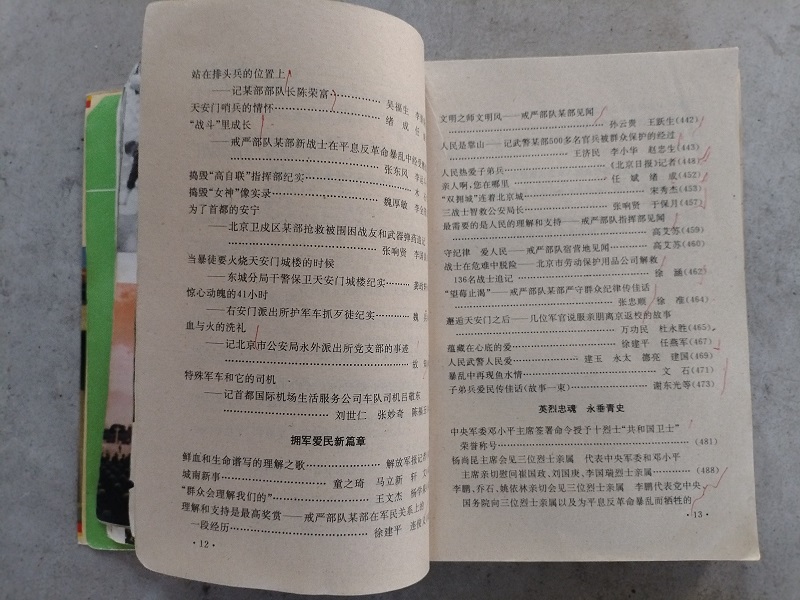 站在排头兵的位置上
——记某部部队长陈荣富 吴福生
天安门哨兵的情怀 绪 成 任
“战斗”里成长
——戒严部队某部新战士在平息反革命暴乱中经受
张东风
捣毁“高自联”指挥部纪实
捣毁“女神”像实录 魏厚敏
为了首都的安宁
——北京卫戍区某部抢救被围困战友和武器弹药追记
张响贤
当暴徒要火烧天安门城楼的时候
——东城分局干警保卫天安门城楼纪实
惊心动魄的41小时
——右安门派出所护军车抓歹徒纪实 魏
血与火的洗礼
——记北京市公安局永外派出所党支部的事迹
特殊军车和它的司机
——记首都国际机场生活服务公司车队司机吕敬东
刘世仁 张妙奇
拥军爱民新篇章
鲜血和生命谱写的理解之歌 解放军报记者
城南新事 童之琦 马立新 轩
“群众会理解我们的” 王文杰
理解和支持是最高奖赏——戒严部队某部在军民关系上的
一段经历 徐建平
·12·
文明之师文明风——戒严部队某部见闻
孙云贵 王跃生(442)
人民是靠山——记武警某部500多名官兵被群众保护的经过
王济民 李小华 赵志东(443)
人民热爱子弟兵 《北京日报》记者(448)
亲人啊,您在哪里 任 斌 绪 成(452)
“双拥城”连着北京城 宋秀杰(453)
三战士智救公安局长 张响贤 于保月(457)
最需要的是人民的理解和支持——戒严部队指挥部见闻
高艾苏(459)
守纪律 爱人民——戒严部队宿营地见闻 高艾苏(460)
战士在危难中脱险——北京市劳动保护用品公司解救
136名战士追记 徐 涵(462)
“望莓止渴”——戒严部队某部严守群众纪律传佳话
张忠顺 徐 准(464)
邂逅天安门之后——几位军官说服亲朋离京返校的故事
万功民 杜永胜(465)
蕴藏在心底的爱 徐建平 任燕军(467)
人民武警人民爱 建玉 永太 德亮 建国(469)
暴乱中再现鱼水情 文 石(471)
子弟兵爱民传佳话(故事一束) 谢东光等(473)
英烈忠魂 永垂青史
中央军委邓小平主席签署命令授予十烈士“共和国卫士”
荣誉称号 (481)
杨尚昆主席会见三位烈士亲属 代表中央军委和邓小平
主席亲切慰问崔国政、刘国庚、李国瑞烈士亲属 (488)
李鹏、乔石、姚依林亲切会见三位烈士亲属 李鹏代表党中央、
国务院向三位烈士亲属以及为平息反革命暴乱而牺牲的
·13·